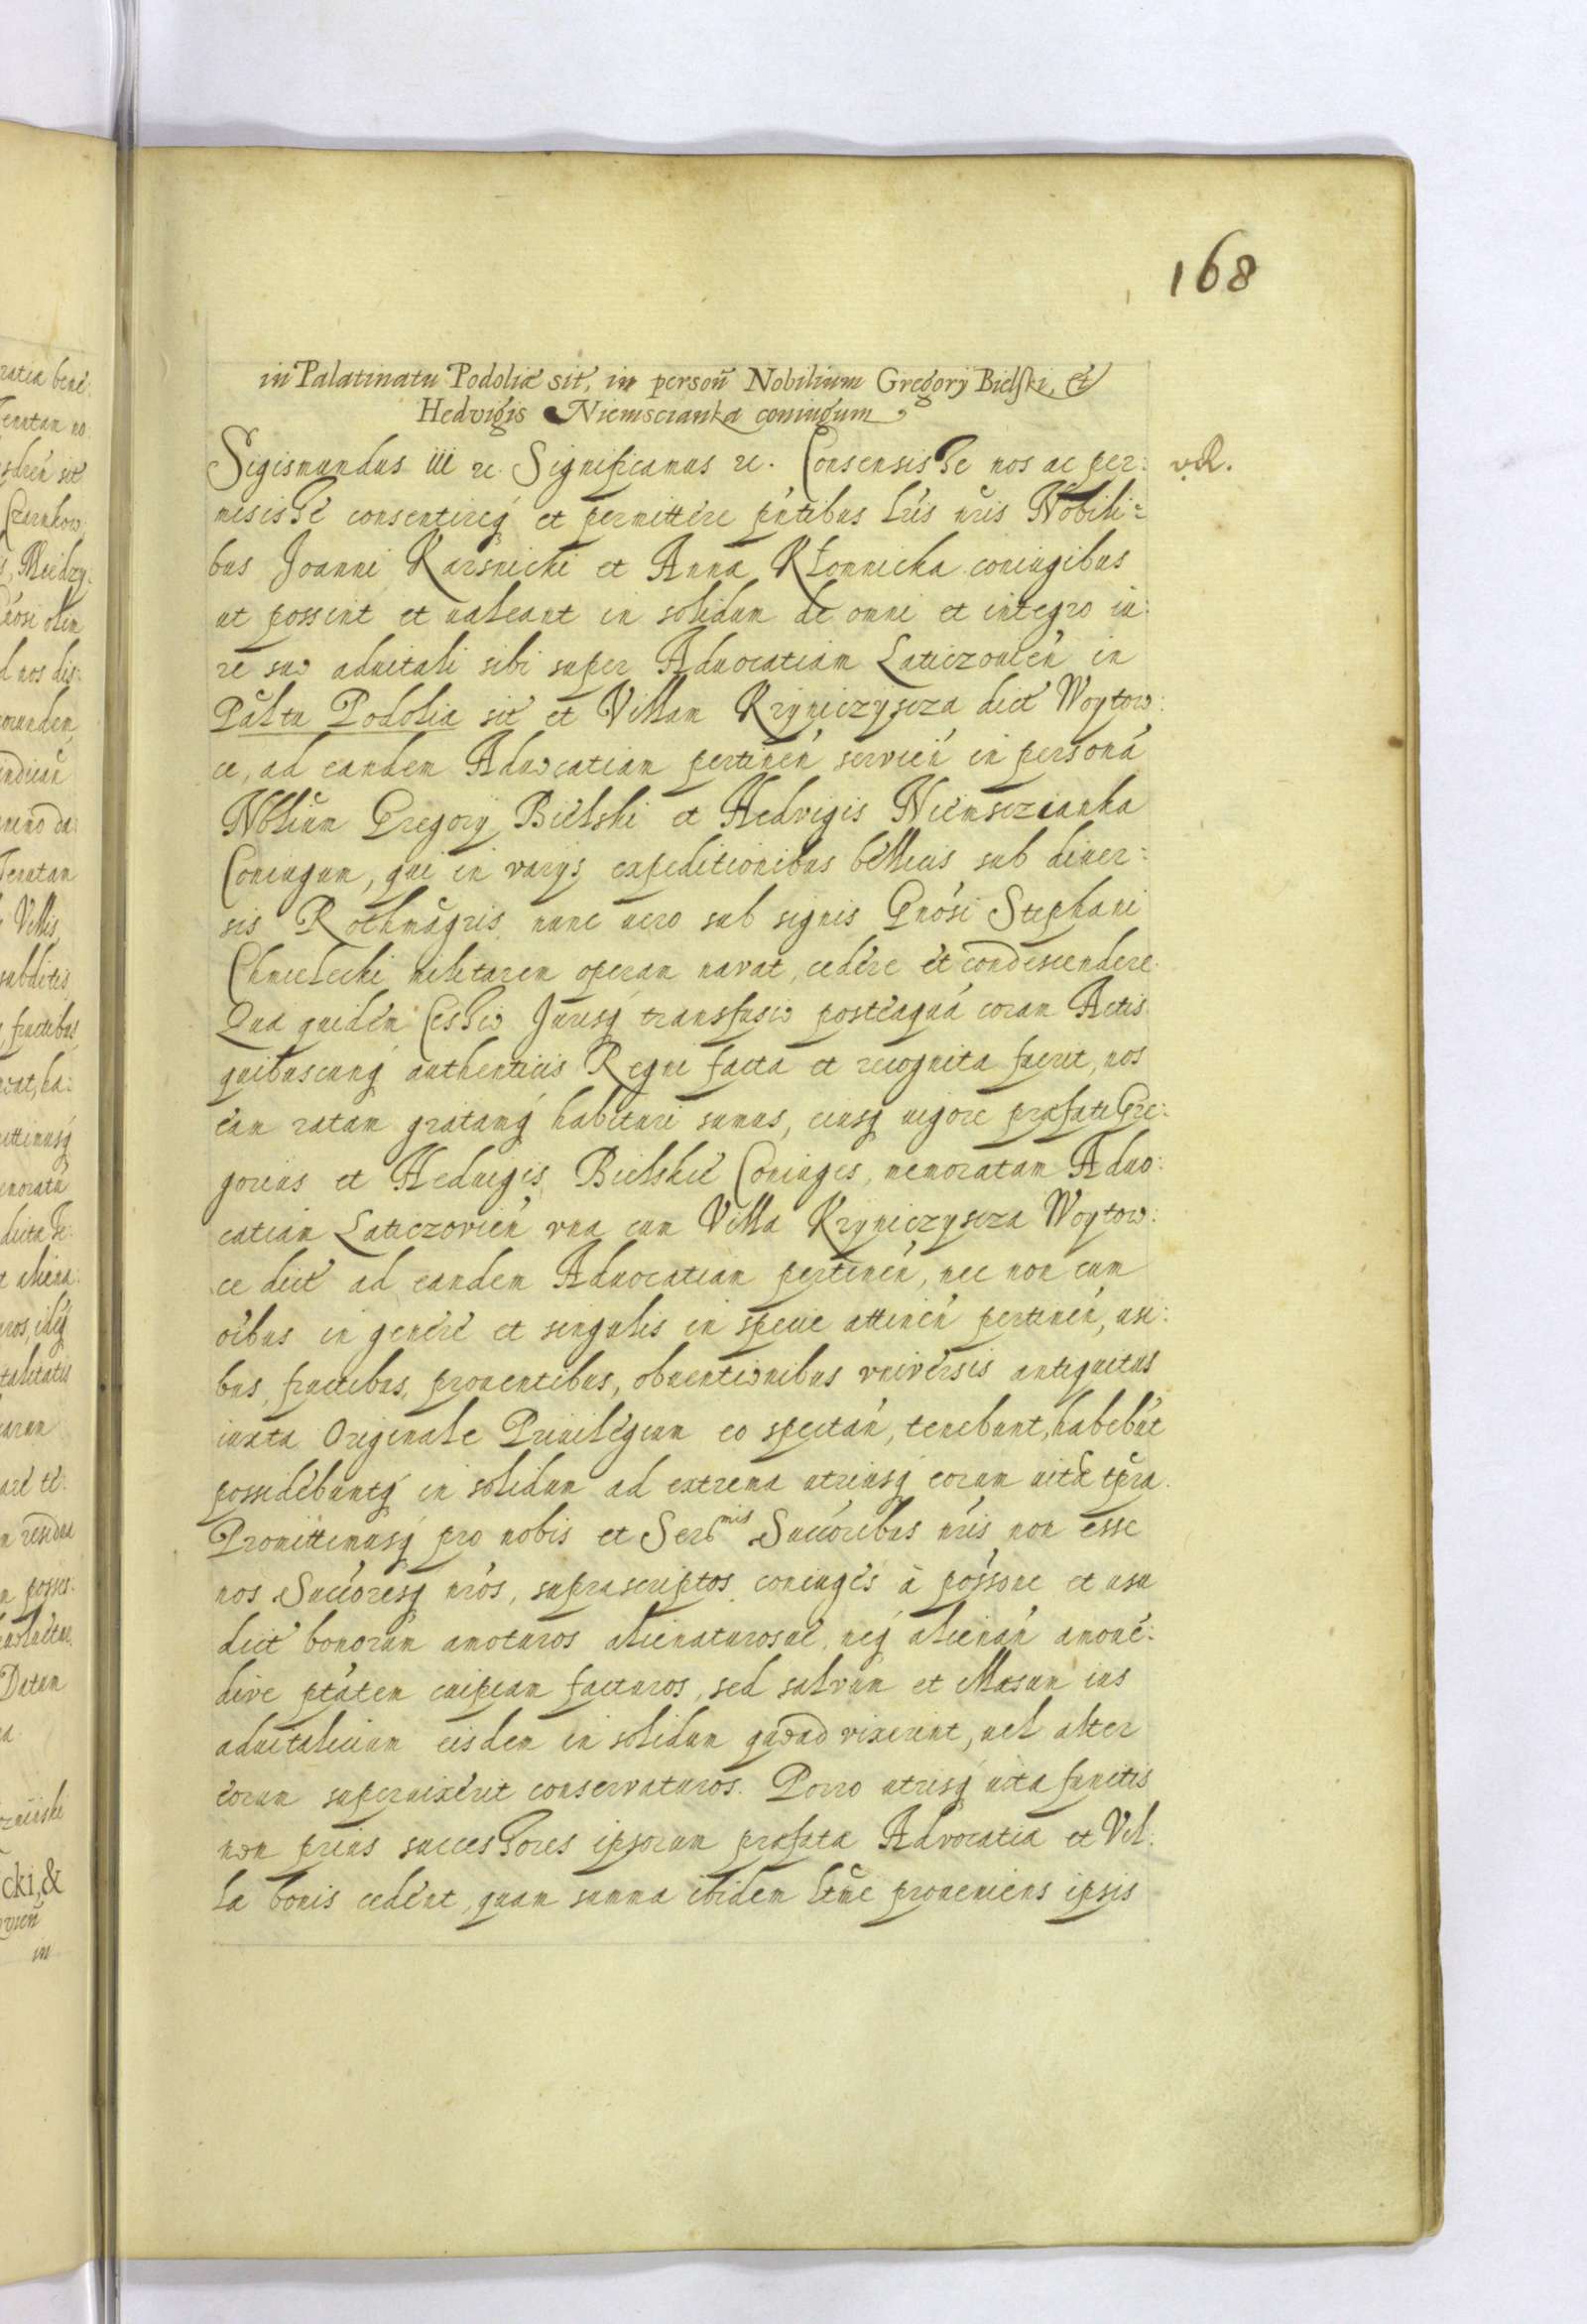 168
in Palatinatu Podoliæ sit, in persoñ Nobilium Gregorÿ Bielski, et
Hedvigis Niemscianka coniugum,
Sigismundus iii rc. Significamus rc. Consensisse nos ac per:
misisse consentireq́ et permittere pñtibus lris nris Nobili=
bus Joanni Karsnicki et Anna Kłonnicka coniugibus
ut possint et ualeant in solidum de omni et integro iu:
re suo aduitali sibi super Aduocatiam Laticzouień in
Palтu Podolia sit et Villam Kryniczyscza dict Woytow:
ce, ad eandem Aduocatiam pertineń servień in personá
Nobliũm Gregorÿ Bielski et Hedvigis Niemsczianka
Coniugum, qui in varÿs expeditionibus bellicis sub diuer:
sis Rothmagris, nunc uero sub signis Gnosi Stephani
Chmielecki militarem operam navat, cedere et condescendere.
Qua quidem Cessio Jurisq́ transfusio posteaquá coram Actis
quibuscunq́ authenticis Regni facta et recognita fuerit, nos
eam ratam gratamq́ habituri sumus, eiusq́ uigore præfati Gre:
gorius et Heduigis Bielskie Coniuges, memoratam Aduo:
catiam Laticzovień vna cum Villa Kryniczyscza Woytow:
ce dict ad eandem Aduocatiam pertineń, nec non cum
oibus in genere et singulis in specie attineń pertineń, usi:
bus, fructibus, prouentibus, obuentionibus vniversis antiquitus
iuxta Originale Priuilegium eo spectań, tenebunt, habebut
possidebuntq́ in solidum ad extrema utriusq́ eorum uitæ tpra.
Promittimusq́ pro nobis et Sermis Succoribus nris non esse
nos Succoresq́ nros, suprascriptos coniuges à possone et usu
dict bonorum amoturos alienaturosue, neq́ alienań amoue:
dive ptatem cuipiam facturos, sed salvum et illæsum ius
aduitalicium eisdem in solidum quoad vixerint, uel alter
eorum superuixerit conservaturos. Porro utrisq́ uita functis
non prius successores ipsorum præfata Advocatia et Vil:
la bonis cedent, quam summa ibidem ltme proueniens ipsis